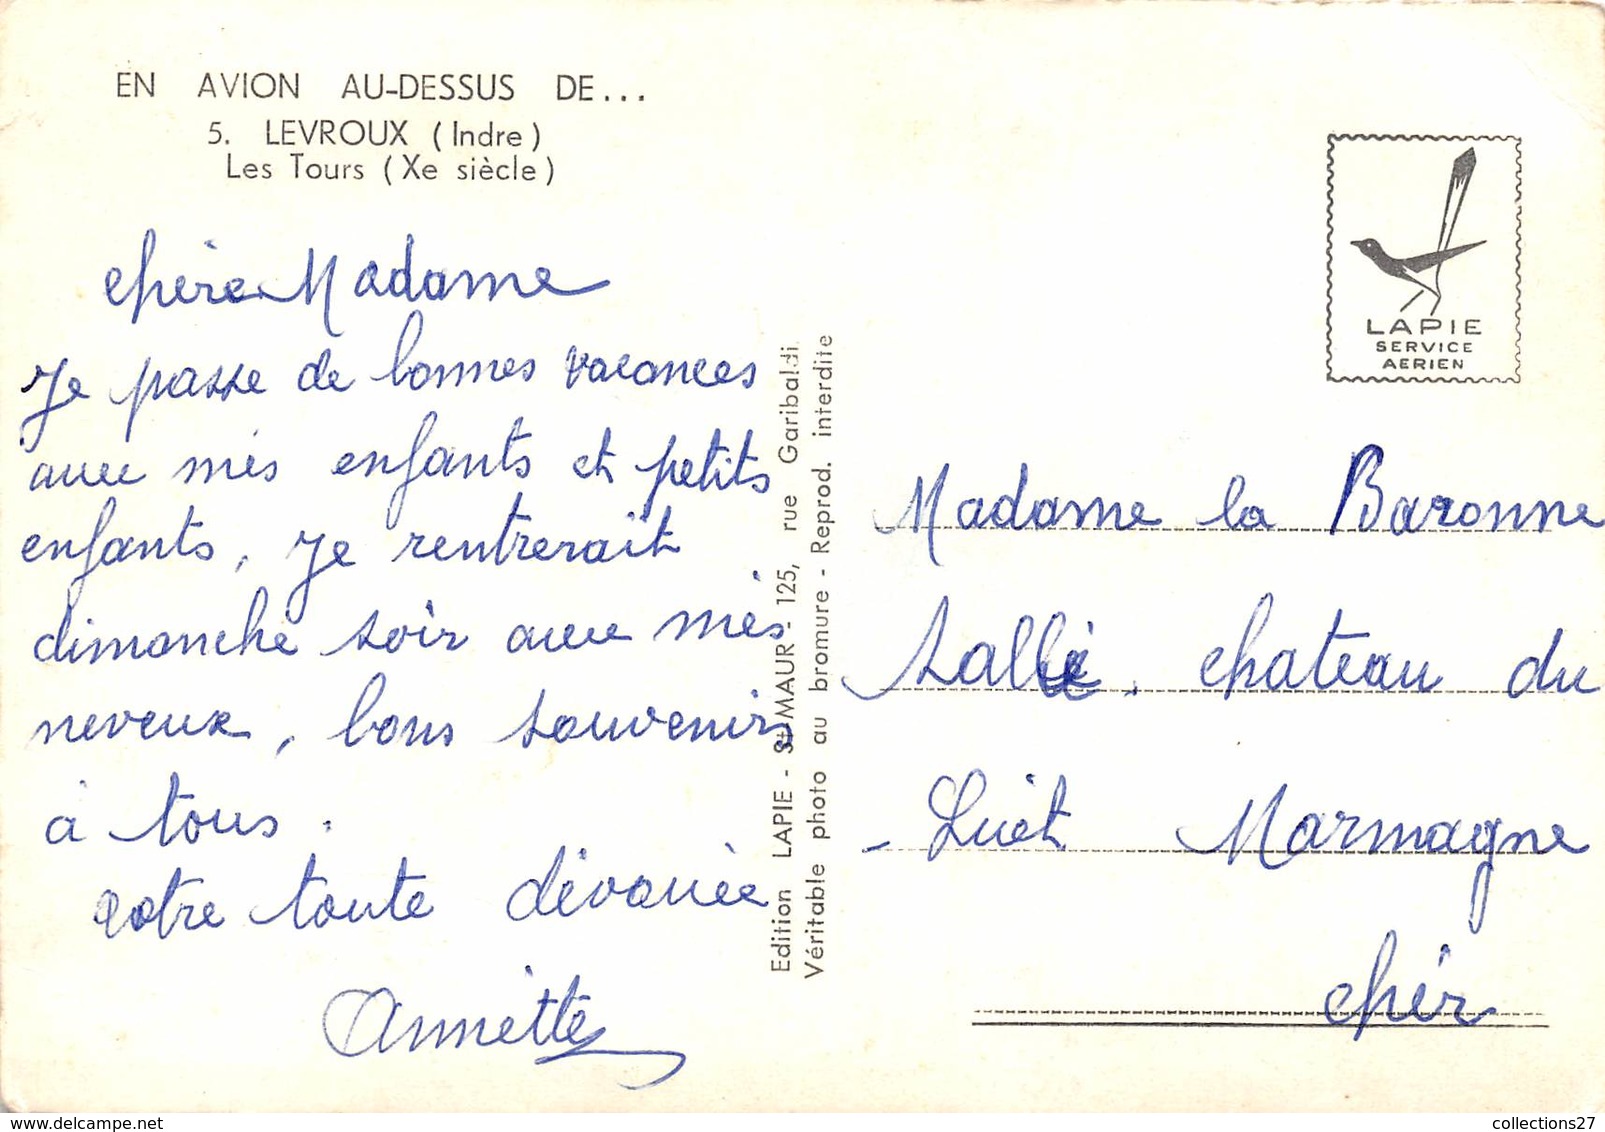 EN AVION AU-DESSUS DE...
5. LEVROUX (Indre)
Les Tours (Xe siècle)
chère Madame
Je passe de bonnes vacances
avec mes enfants et petits
enfants, Je rentrerait
dimanche soir avec mes
neveux, bons souvenirs
à tous.
votre toute dévouée
Annette
Edition LAPIE - St-MAUR - 125, rue Garibaldi
Véritable photo au bromure - Reprod. interdite
LAPIE
SERVICE
AERIEN
Madame la Baronne
Sallé, chateau du
- Luet Marmagne
cher
collections27